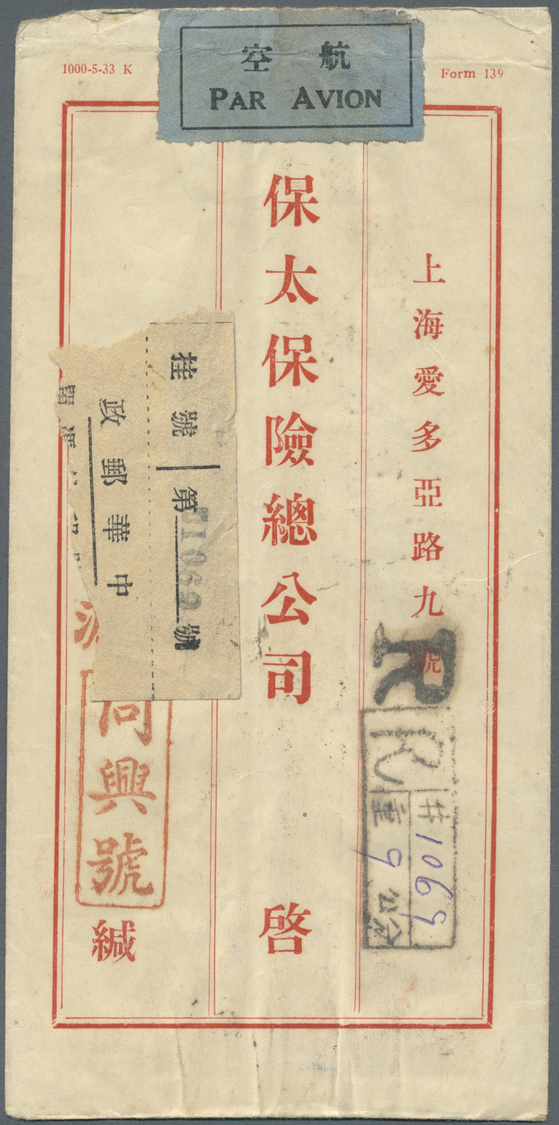 航空
PAR AVION
1000-5-33 K
Form 139
上海愛多亞路九號
保太保險總公司
啓
掛號
第 1069 號
中華郵政
R
R
1069
重 9
同興號
緘